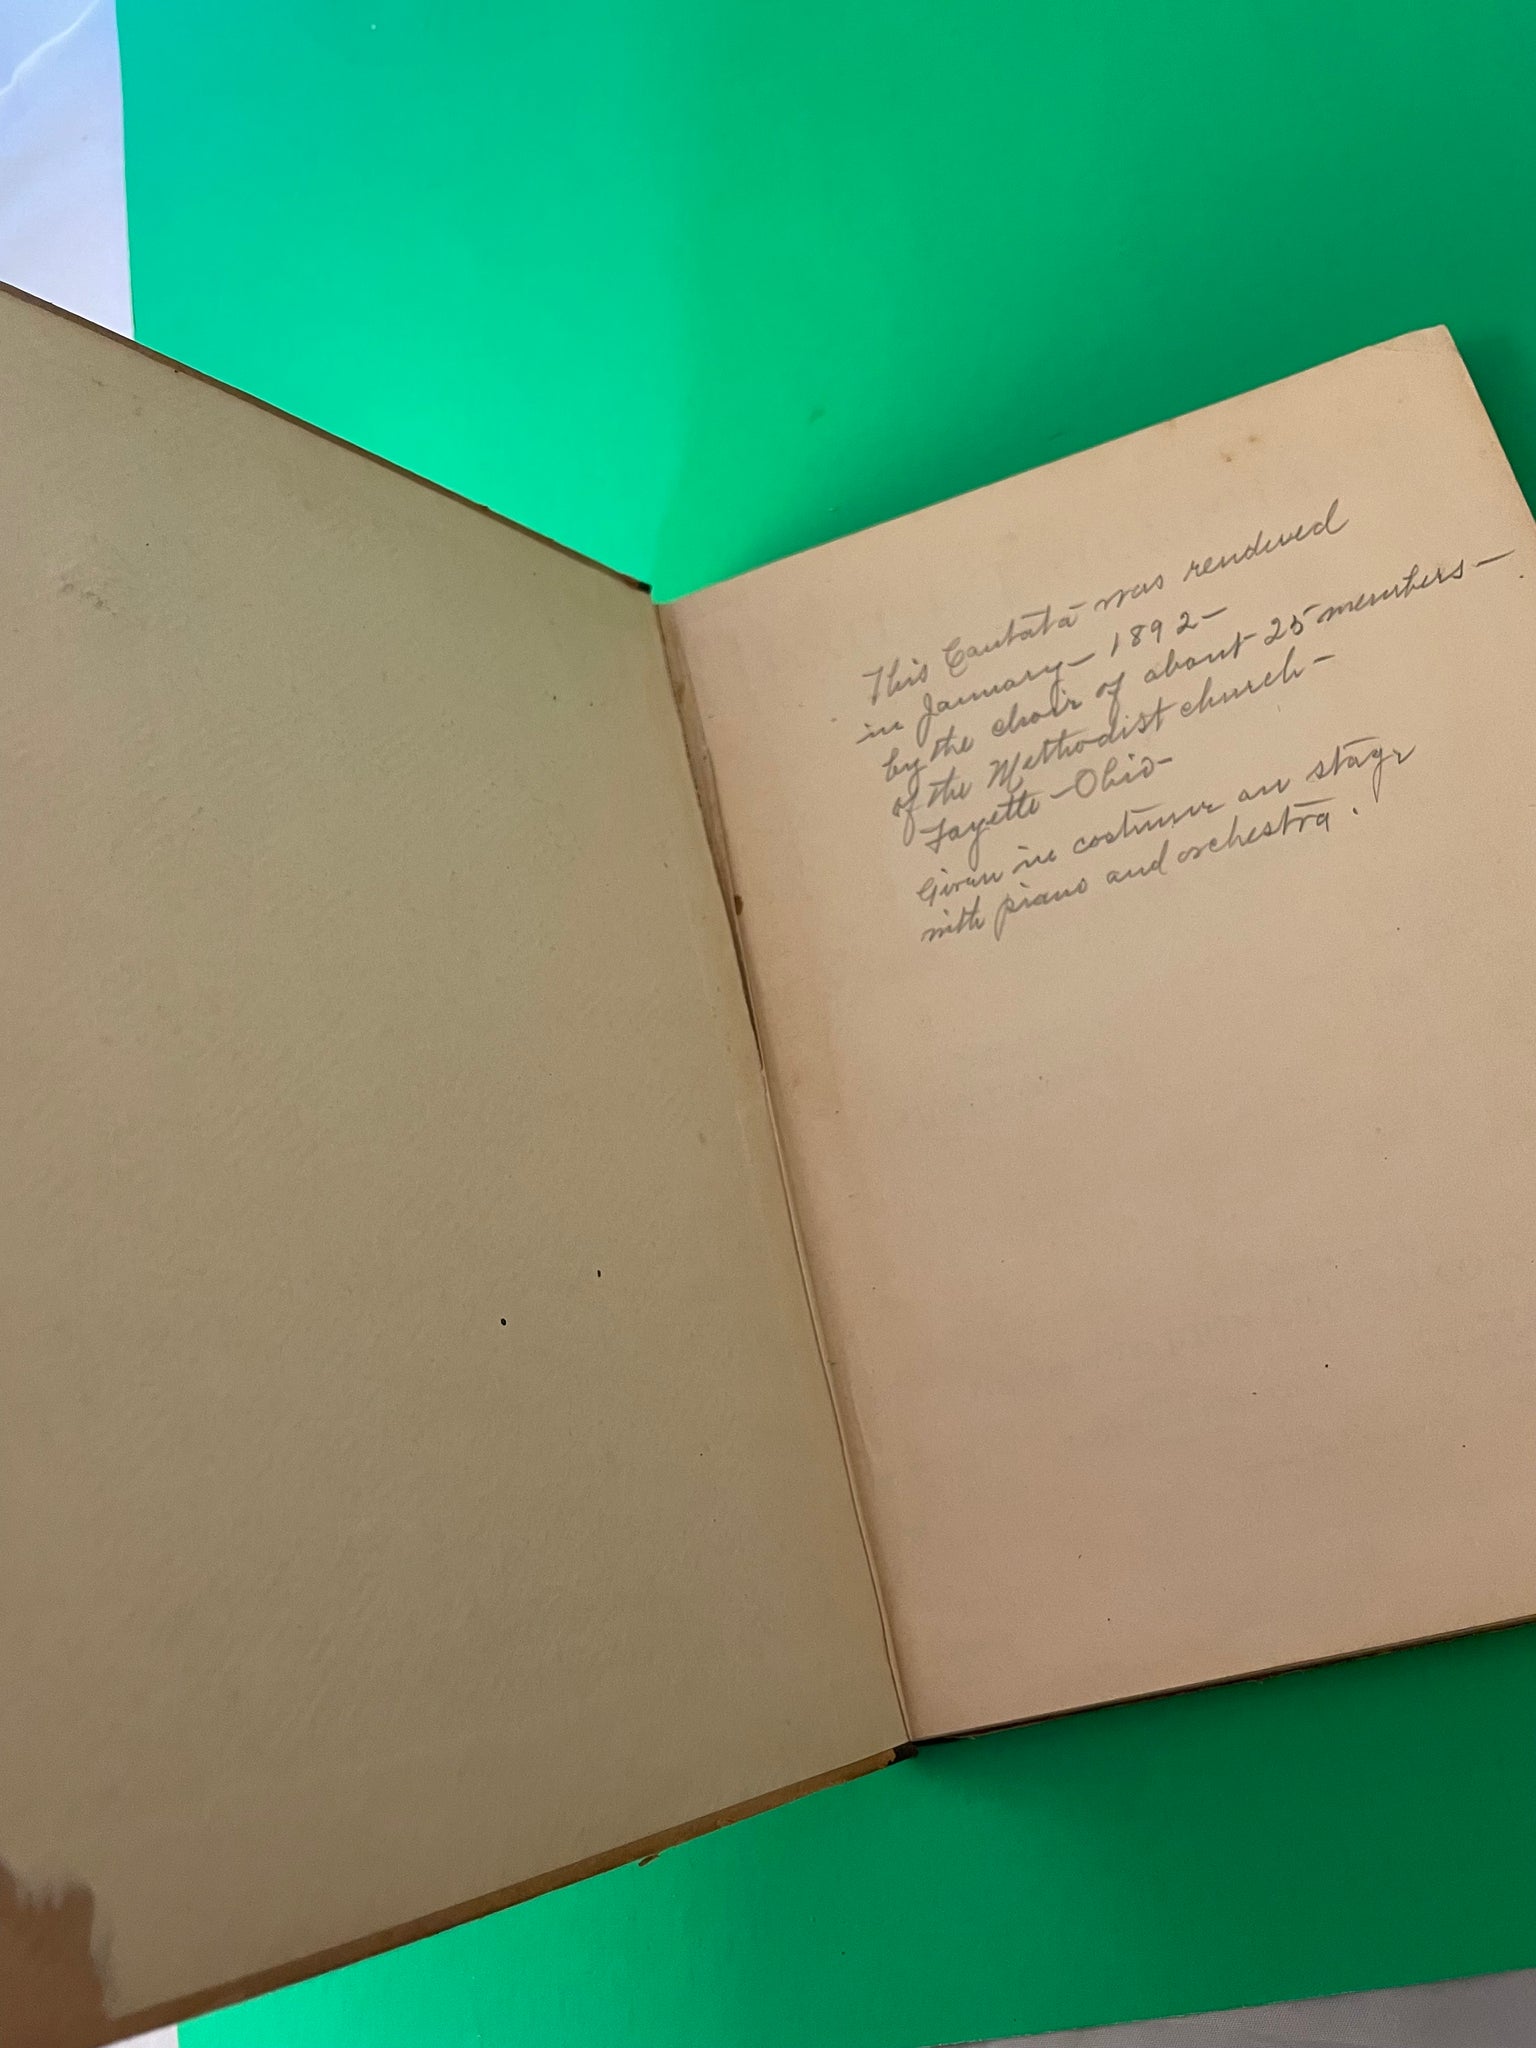 This Cantata was rendered
in January – 1892 –
by the choir of about 25 members –
of the Methodist church –
Fayette – Ohio –
Given in costume on stage
with piano and orchestra.